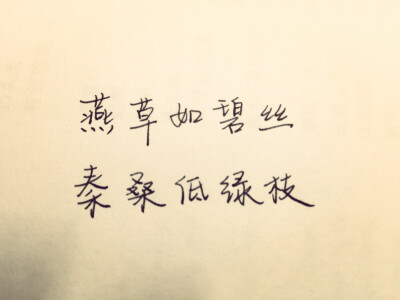 燕草如碧丝
秦桑低绿枝